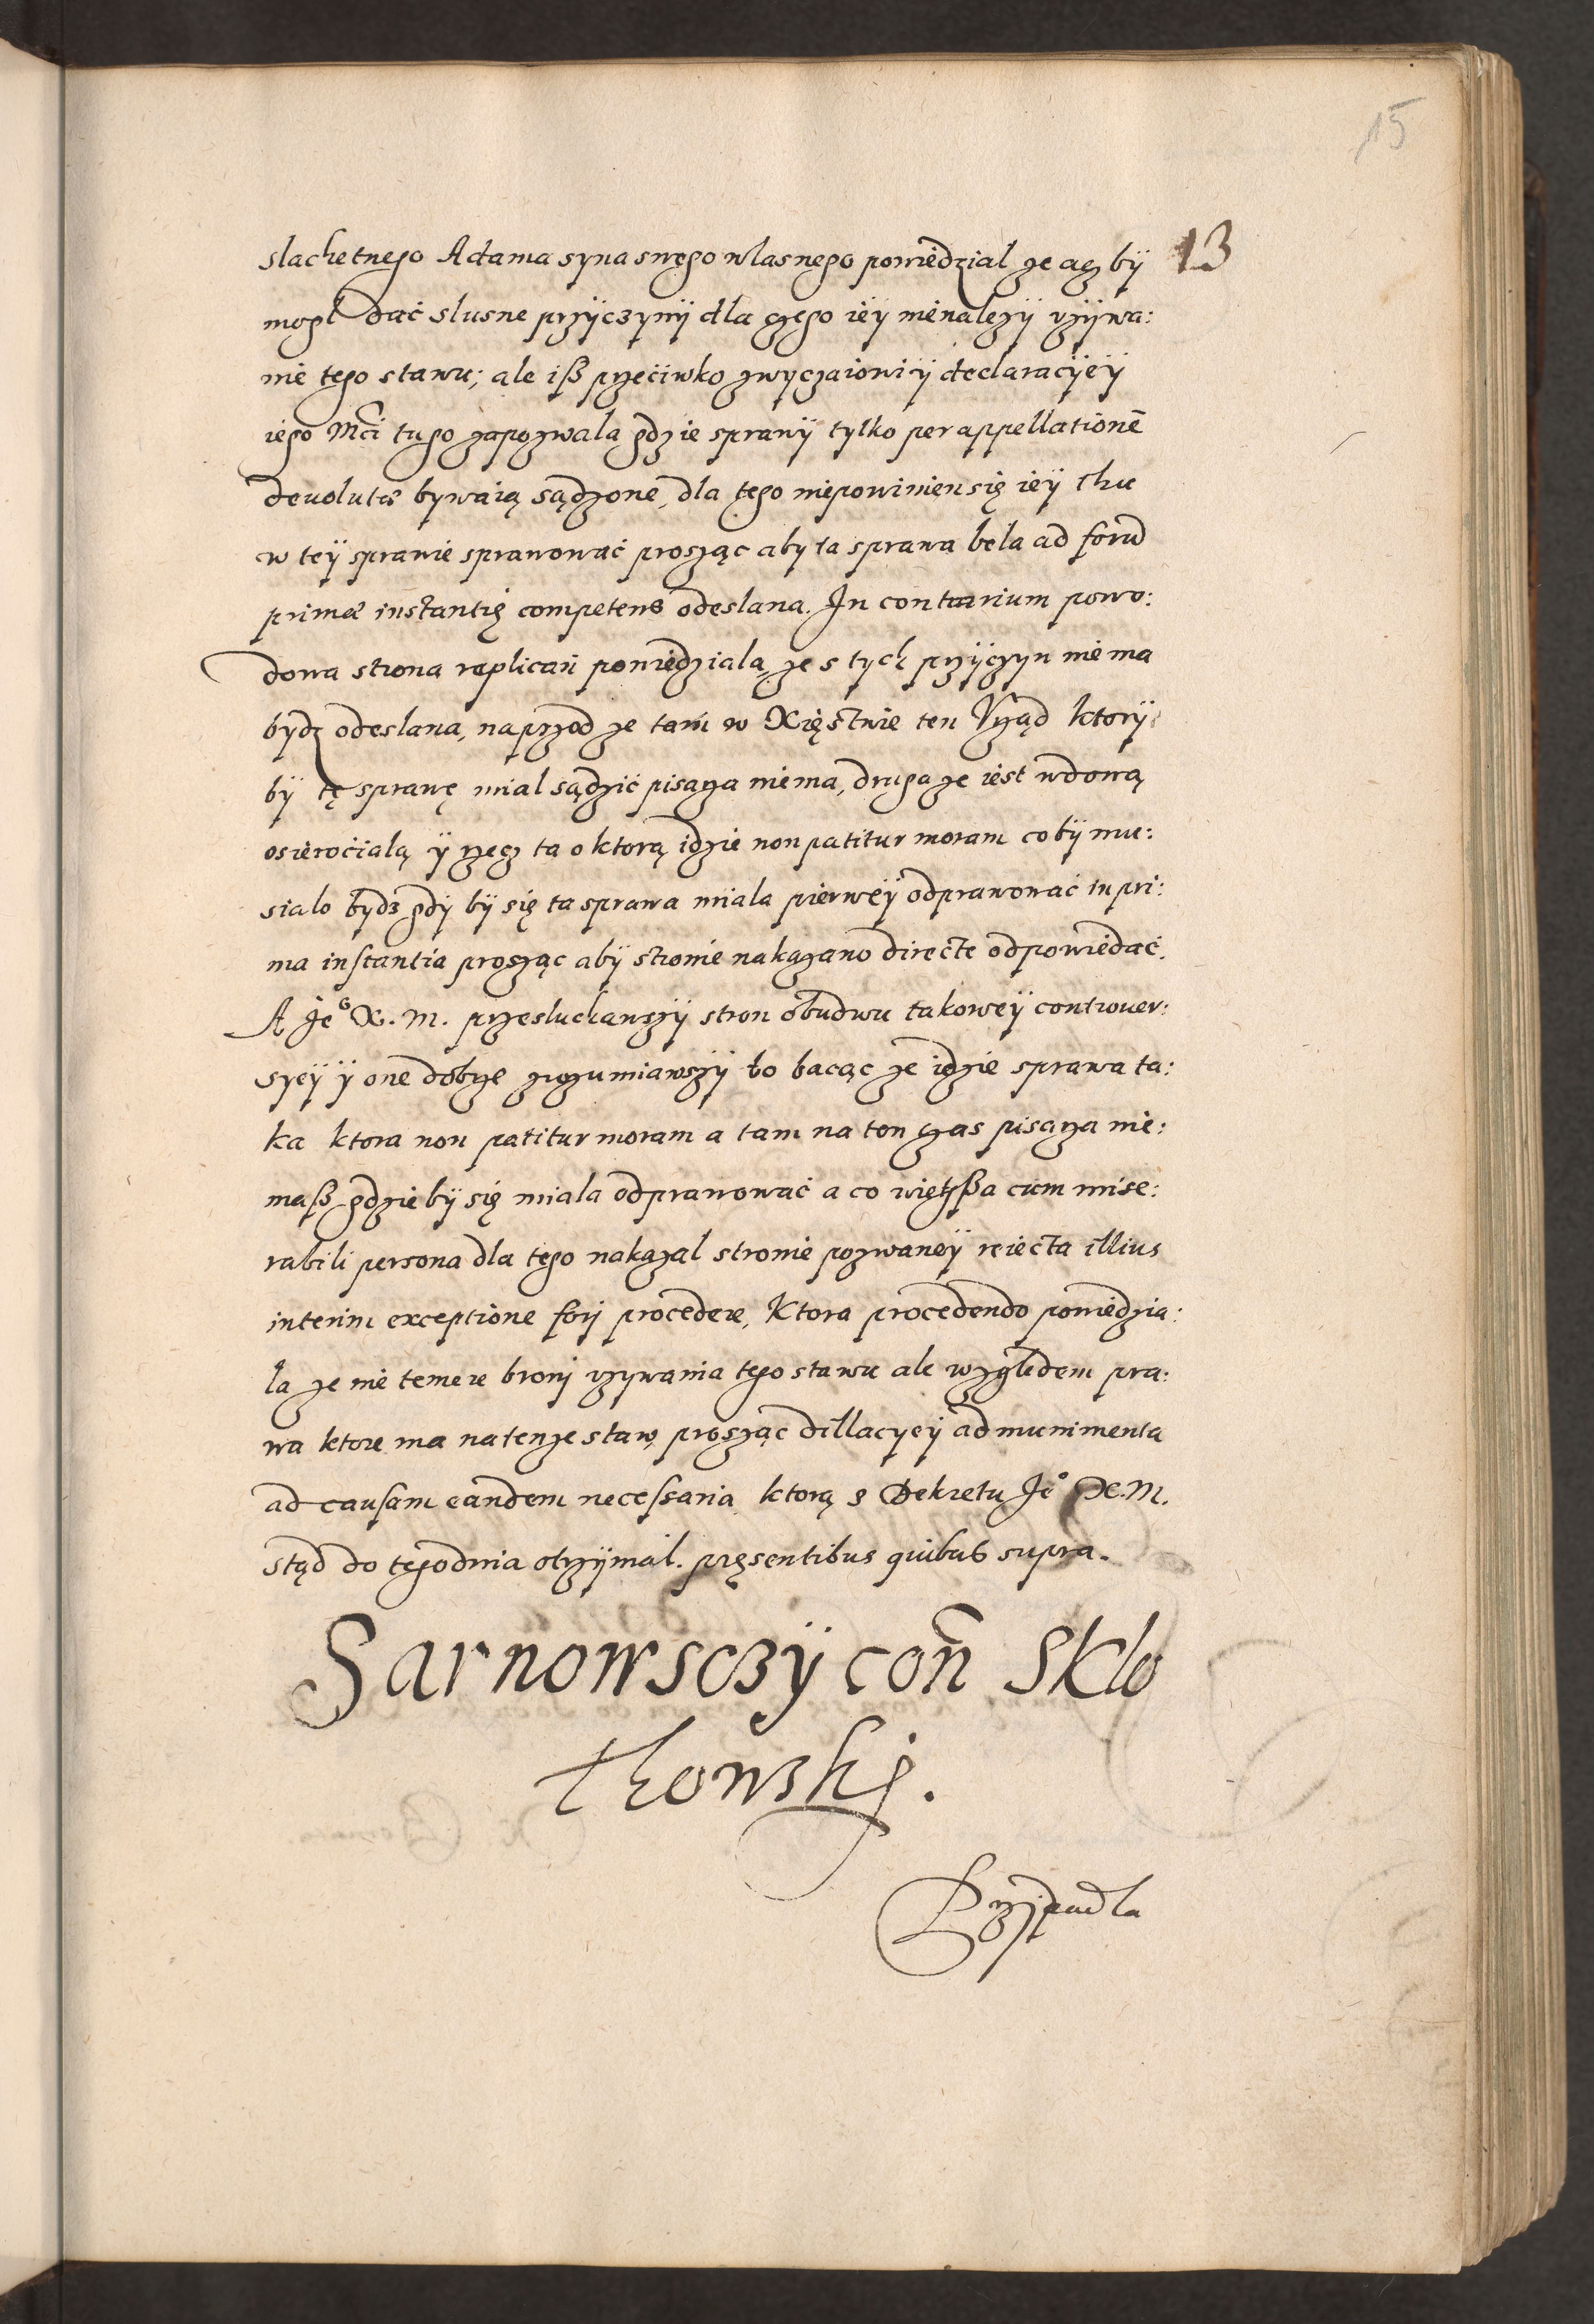 15
13
slachetnego Adama syna swego wlasnego powiedzial ze acz bÿ
mogl dać slusne przÿczynÿ dla czego ieÿ nienalezÿ vzÿwa:
nie tego stawu; ale iß przeciwko zwyczaiowi ÿ declaracÿeÿ
iego Mci tu go zapozwala gdzie sprawÿ tylko per appellationē
deuolutæ bywaią sądzone, dla tego niepowinien się ieÿ thu
w teÿ sprawie sprawować prosząc aby ta sprawa bela ad forū
primæ instantię competens odeslana. In contrarium powo:
dowa strona replicań powiedziala ze s tych przÿczyn nie ma
bydz odeslana, naprzod ze tam w Xięstwie ten Vrząd ktorÿ
bÿ tę sprawę mial sądzić pisarza niema, druga ze iest wdową
osierocialą ÿ rzecz ta o ktorą idzie non patitur moram cobÿ mu:
sialo bydz gdÿ bÿ się ta sprawa miala pierweÿ odprawować in pri:
ma instantia prosząc abÿ stronie nakazano directe odpowiedać.
A Jeº X. M. przesluchawszÿ stron obudwu takoweÿ controuer:
syeÿ ÿ one dobrze zrozumiawszÿ bo bacąc ze idzie sprawa ta:
ka ktora non patitur moram a tam na ton czas pisarza nie:
maß gdzie bÿ się miala odprawować a co więtzßa cum mise:
rabili persona dla tego nakazal stronie pozwaneÿ reiecta illius
interim exceptione forj procedere. Ktora procedendo powiedzia:
la ze nie temere bronj vzywania tego stawu ale wzgledem pra:
wa ktore ma na tenze staw prosząc dillacyeÿ ad munimenta
ad causam eandem necessaria ktorą s Dekretu Jeº X. M.
stąd do tegodnia otrzÿmal. pręsentibus quibus supra.
Sarnowsczÿ con̄ Sklo
thowskj.
Przÿpadla